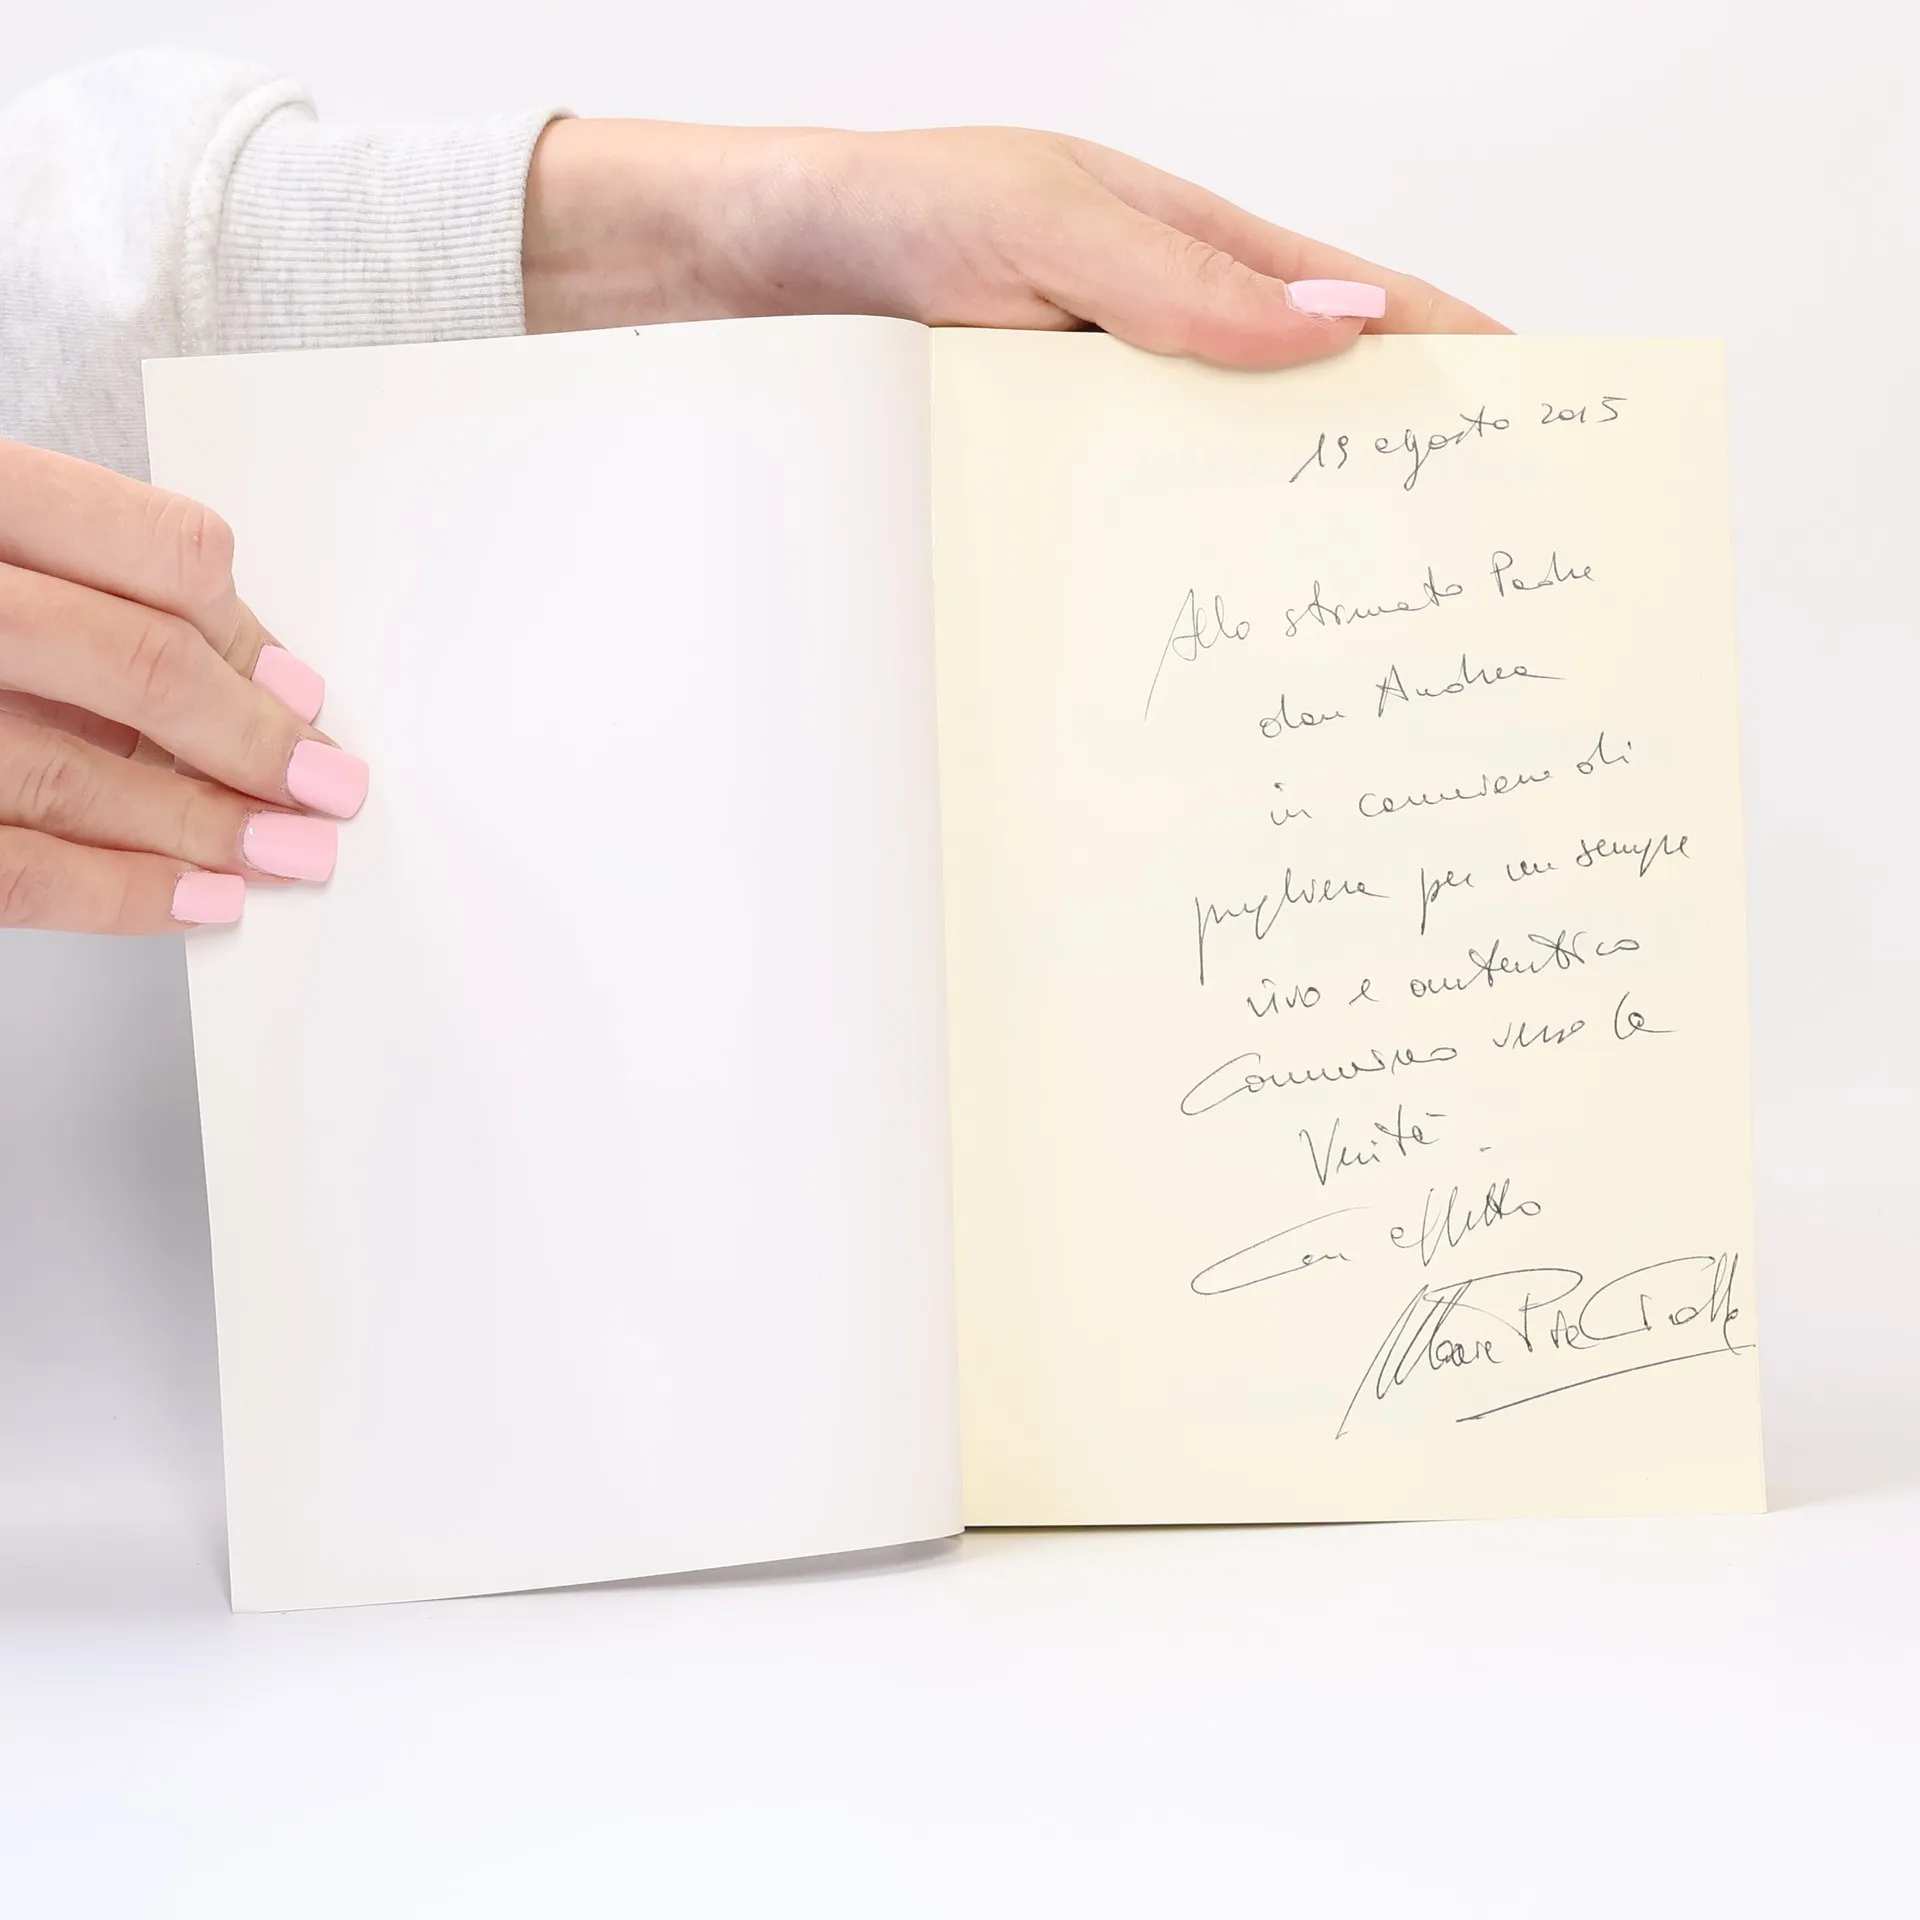 19 agosto 2015
Allo stimato Padre
don Andrea
in comunione di
preghiera per un sempre
vivo e autentico
Cammino verso la
Verità.
Con affetto
Maria Pia